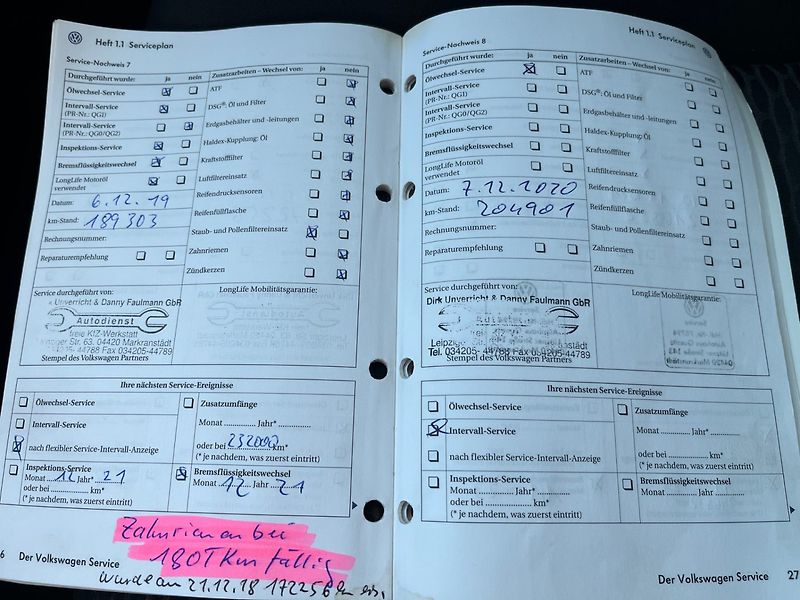 Heft 1.1 Serviceplan
Service-Nachweis 7
Durchgeführt wurde: ja nein
Zusatzarbeiten – Wechsel von: ja nein
Ölwechsel-Service
Intervall-Service
(PR-Nr.: QG1)
Intervall-Service
(PR-Nr.: QG0/QG2)
Inspektions-Service
Bremsflüssigkeitswechsel
LongLife Motoröl
verwendet
Datum: 6.12.19
km-Stand: 189303
Rechnungsnummer:
Reparaturempfehlung
ATF
DSG®: Öl und Filter
Erdgasbehälter und -leitungen
Haldex-Kupplung: Öl
Kraftstofffilter
Luftfiltereinsatz
Reifendrucksensoren
Reifenfüllflasche
Staub- und Pollenfiltereinsatz
Zahnriemen
Zündkerzen
Service durchgeführt von:
LongLife Mobilitätsgarantie:
Unverricht & Danny Faulmann GbR
Autodienst
freie KfZ-Werkstatt
Str. 63, 04420 Markranstädt
44788 Fax 034205-44789
Stempel des Volkswagen Partners
Ihre nächsten Service-Ereignisse
Ölwechsel-Service
Intervall-Service
nach flexibler Service-Intervall-Anzeige
Inspektions-Service
Monat 12 Jahr* 21
oder bei km*
(* je nachdem, was zuerst eintritt)
Zusatzumfänge
Monat Jahr*
oder bei 232000 km*
(* je nachdem, was zuerst eintritt)
Bremsflüssigkeitswechsel
Monat 12 Jahr 21
Zahnriemen bei
180T Km fällig
wurde am 21.12.18 172256 km
6 Der Volkswagen Service
Heft 1.1 Serviceplan
Service-Nachweis 8
Durchgeführt wurde: ja nein
Zusatzarbeiten – Wechsel von: ja nein
Ölwechsel-Service
Intervall-Service
(PR-Nr.: QG1)
Intervall-Service
(PR-Nr.: QG0/QG2)
Inspektions-Service
Bremsflüssigkeitswechsel
LongLife Motoröl
verwendet
Datum: 7.12.2020
km-Stand: 204901
Rechnungsnummer:
Reparaturempfehlung
ATF
DSG®: Öl und Filter
Erdgasbehälter und -leitungen
Haldex-Kupplung: Öl
Kraftstofffilter
Luftfiltereinsatz
Reifendrucksensoren
Reifenfüllflasche
Staub- und Pollenfiltereinsatz
Zahnriemen
Zündkerzen
Service durchgeführt von:
LongLife Mobilitätsgarantie:
Dirk Unverricht & Danny Faulmann GbR
Leipziger
Tel. 034205- 44788 Fax 034205-44789
Stempel des Volkswagen Partners
Ihre nächsten Service-Ereignisse
Ölwechsel-Service
Intervall-Service
nach flexibler Service-Intervall-Anzeige
Inspektions-Service
Monat Jahr*
oder bei km*
(* je nachdem, was zuerst eintritt)
Zusatzumfänge
Monat Jahr*
oder bei km*
(* je nachdem, was zuerst eintritt)
Bremsflüssigkeitswechsel
Monat Jahr
Der Volkswagen Service 27